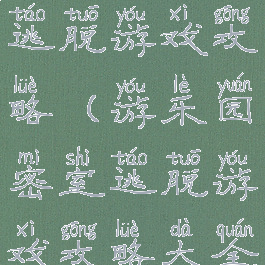 táo tuō yóu xì gōng
逃脱游戏攻
lüè yóu lè yuán
略(游乐园
mì shì táo tuō yóu
密室逃脱游
xì gōng lüè dà quán
戏攻略大全